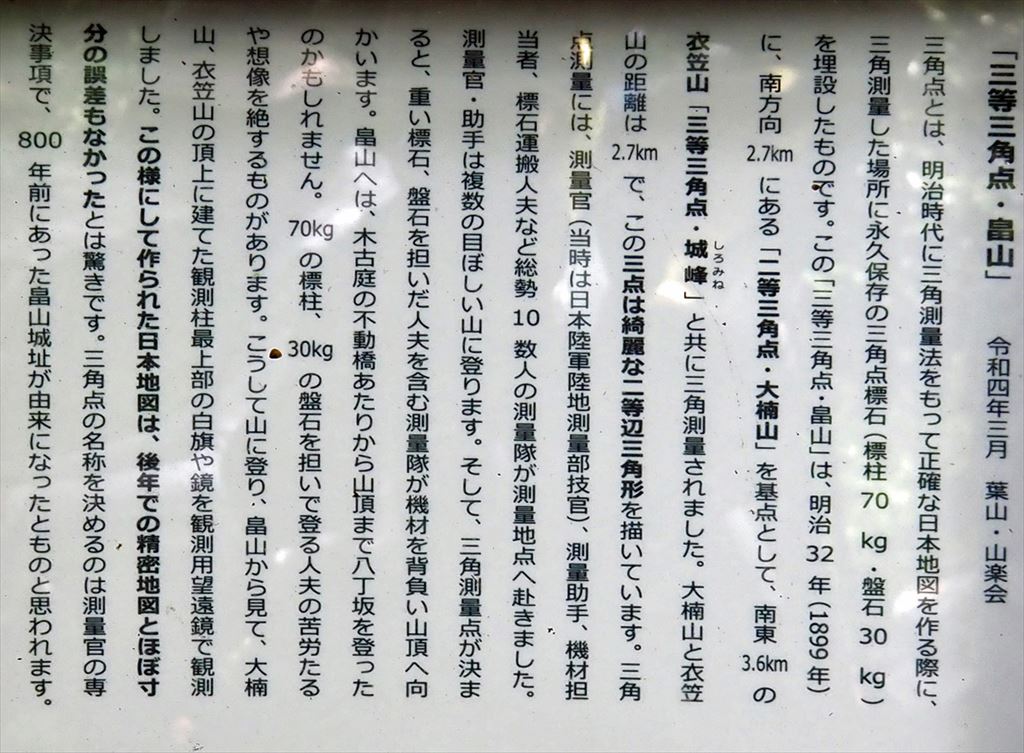 「三等三角点・畠山」　　令和四年三月　葉山・山楽会
三角点とは、明治時代に三角測量法をもって正確な日本地図を作る際に、
三角測量した場所に永久保存の三角点標石（標柱 70 kg・盤石 30 kg）
を埋設したものです。この「三等三角点・畠山」は、明治 32 年（1899 年）
に、南方向 2.7km にある「二等三角点・大楠山」を基点として、南東 3.6km の
衣笠山「三等三角点・城峰」と共に三角測量されました。大楠山と衣笠
しろみね
山の距離は 2.7km で、この三点は綺麗な二等辺三角形を描いています。三角
点測量には、測量官（当時は日本陸軍陸地測量部技官）、測量助手、機材担
当者、標石運搬人夫など総勢 10 数人の測量隊が測量地点へ赴きました。
測量官・助手は複数の目ぼしい山に登ります。そして、三角測量点が決ま
ると、重い標石、盤石を担いだ人夫を含む測量隊が機材を背負い山頂へ向
かいます。畠山へは、木古庭の不動橋あたりから山頂まで八丁坂を登った
のかもしれません。70kg の標柱、30kg の盤石を担いで登る人夫の苦労たる
や想像を絶するものがあります。こうして山に登り、畠山から見て、大楠
山、衣笠山の頂上に建てた観測柱最上部の白旗や鏡を観測用望遠鏡で観測
しました。この様にして作られた日本地図は、後年での精密地図とほぼ寸
分の誤差もなかったとは驚きです。三角点の名称を決めるのは測量官の専
決事項で、800 年前にあった畠山城址が由来になったとものと思われます。